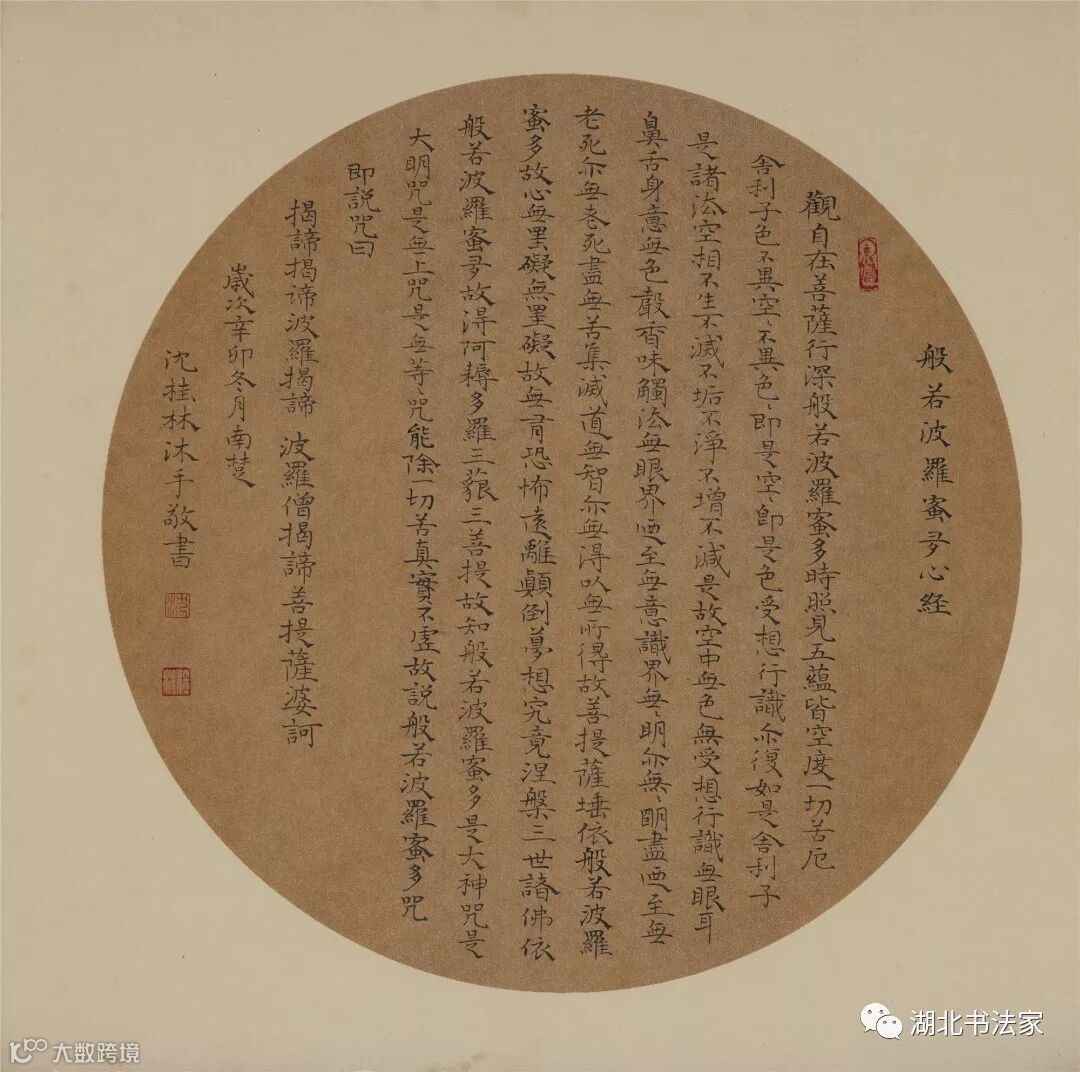 般若波羅蜜多心経
觀自在菩薩行深般若波羅蜜多時照見五蘊皆空度一切苦厄
舍利子色不異空、不異色、即是空、即是色受想行識亦復如是舍利子
是諸法空相不生不滅不垢不淨不增不減是故空中無色無受想行識無眼耳
鼻舌身意無色聲香味觸法無眼界迺至無意識界無、明亦無、明盡迺至無
老死亦無老死盡無苦集滅道無智亦無得以無所得故菩提薩埵依般若波羅
蜜多故心無罣礙無罣礙故無有恐怖遠離顛倒夢想究竟涅槃三世諸佛依
般若波羅蜜多故得阿耨多羅三藐三菩提故知般若波羅蜜多是大神咒是
大明咒是無上咒是無等、咒能除一切苦真實不虛故説般若波羅蜜多咒
即説咒曰
揭諦揭諦波羅揭諦 波羅僧揭諦菩提薩婆訶
歲次辛卯冬月南楚
沈桂林沐手敬書
湖北书法家
大数跨境